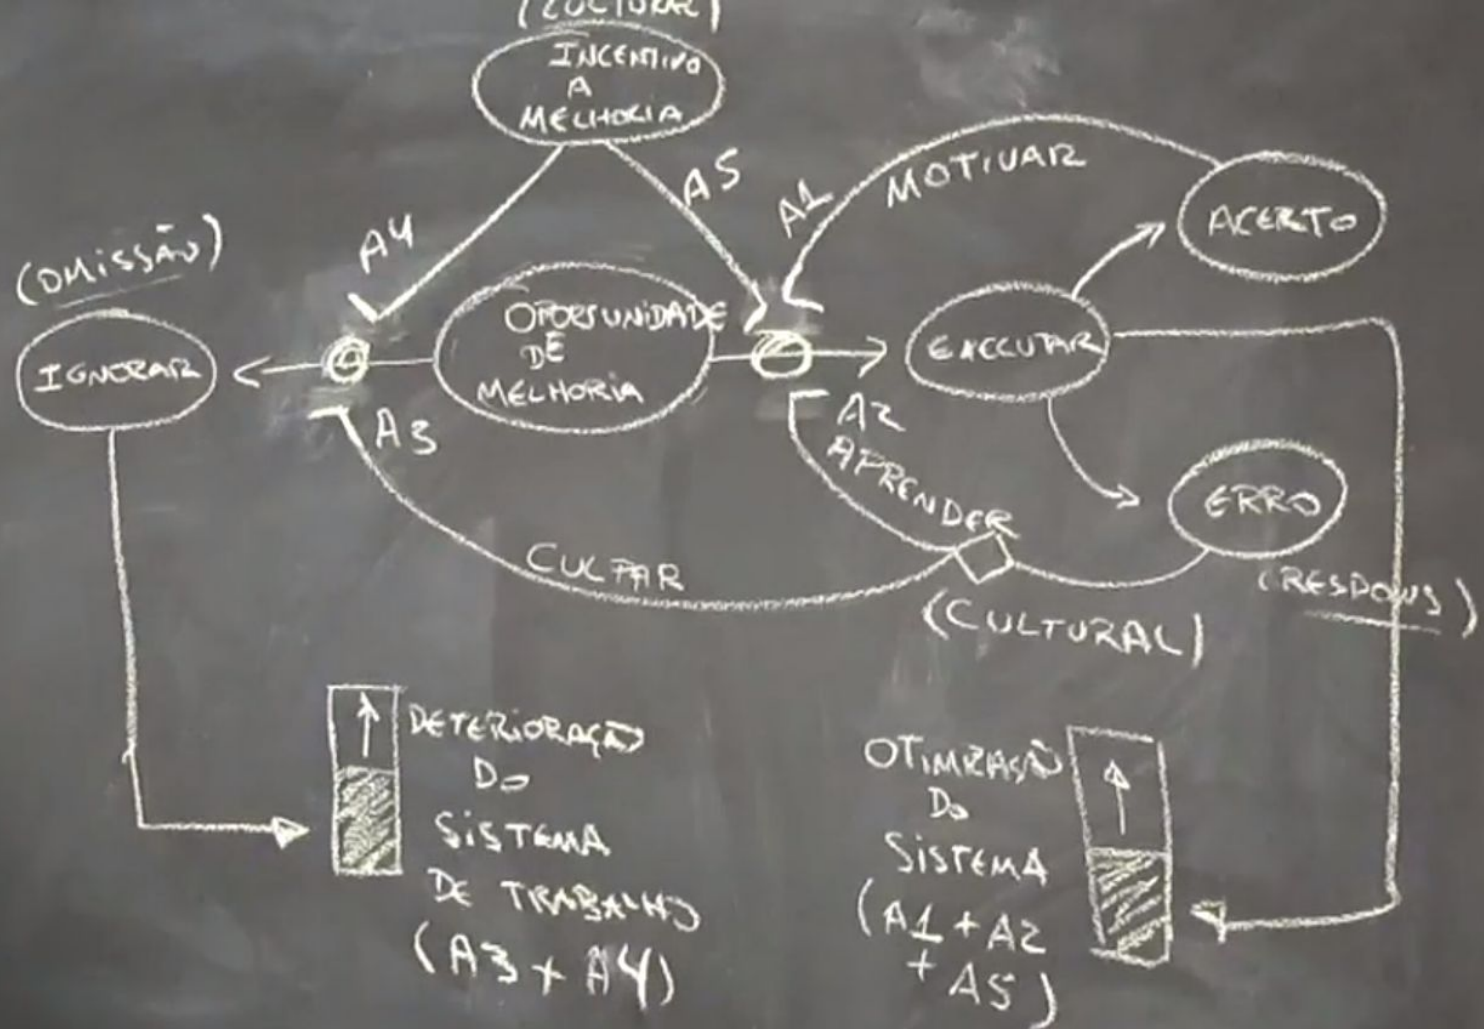 (CULTURAL)
INCENTIVO
A
MELHORIA
A4
A5
A1
MOTIVAR
ACERTO
(OMISSÃO)
IGNORAR
OPORTUNIDADE
DE
MELHORIA
EXECUTAR
A3
A2
APRENDER
ERRO
CULPAR
(CULTURAL)
DETERIORAÇÃO
DO
SISTEMA
DE TRABALHO
(A3 + A4)
OTIMIZAÇÃO
DO
SISTEMA
(A1 + A2
+ A5)